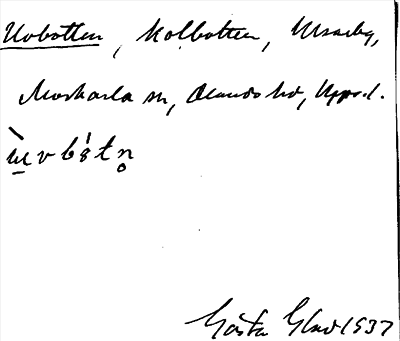 Uvbotten, Kolbotten, Ursarby,
Morkarla sn, Olands hd, Uppsl.
Gösta Glad 1937